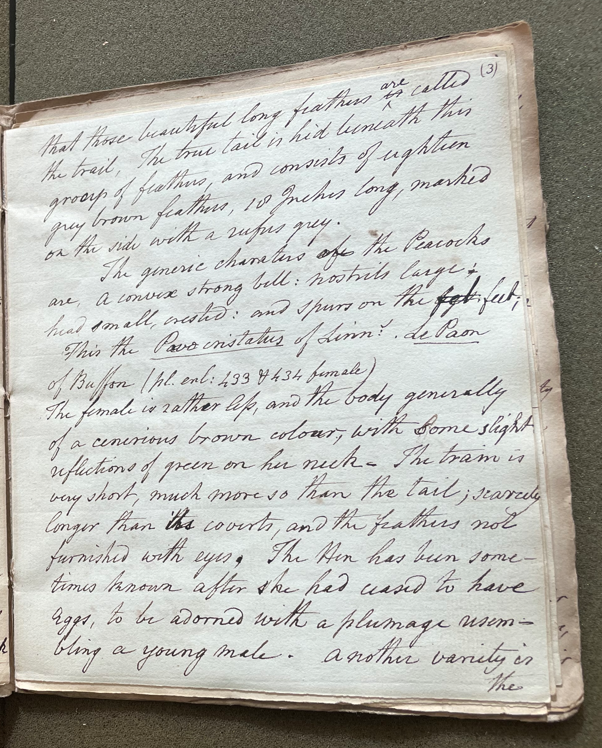 (3)
that those beautiful long feathers are called
the trail, The true tail is hid beneath this
group of feathers, and consists of eighteen
grey brown feathers, 18 Inches long, marked
on the side with a rufus grey.
The generic charaters of the Peacocks
are, A convex strong bill: nostrils large:
head small, crested: and spurs on the feet;
This the Pavo cristatus of Linns. Le Paon
of Buffon (pl. enl: 433 & 434 female)
The female is rather less, and the body generally
of a cenerious brown colour, with some slight
reflections of green on her neck - The train is
very short, much more so than the tail; scarcely
longer than its coverts, and the feathers not
furnished with eyes. The Hen has been some-
times known after she had ceased to have
eggs, to be adorned with a plumage resem-
bling a young male. another variety is
the